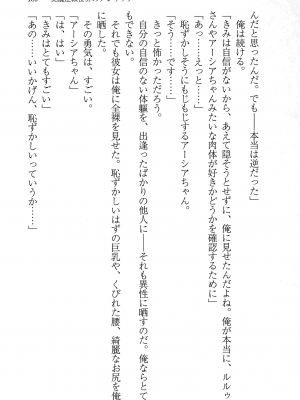 んだと思ったんだ。でも――本当は逆だった」
　俺は続ける。
「きみは自信がないから、あえて隠そうとせずに、俺に見せたんだよね。俺が本当に、ルルゥ
さんやアーシアちゃんみたいな肉体が好きかどうかを確認するために」
「あっ……えっと……」
　恥ずかしそうにもじもじするアーシアちゃん。
「そう……です……」
　きっと怖かっただろう。
　自分の自信のない体軀を、出逢ったばかりの他人に――それも異性に晒すのだ。俺ならとて
もできない。
　それでも彼女は俺に全裸を見せた。恥ずかしいはずの巨乳や、くびれた腰、綺麗なお尻を俺
に晒した。
　その勇気は、すごい。
「アーシアちゃん」
「は、はい」
「きみはとてもすごい」
「あの……いいかげん、恥ずかしいっていうか……」